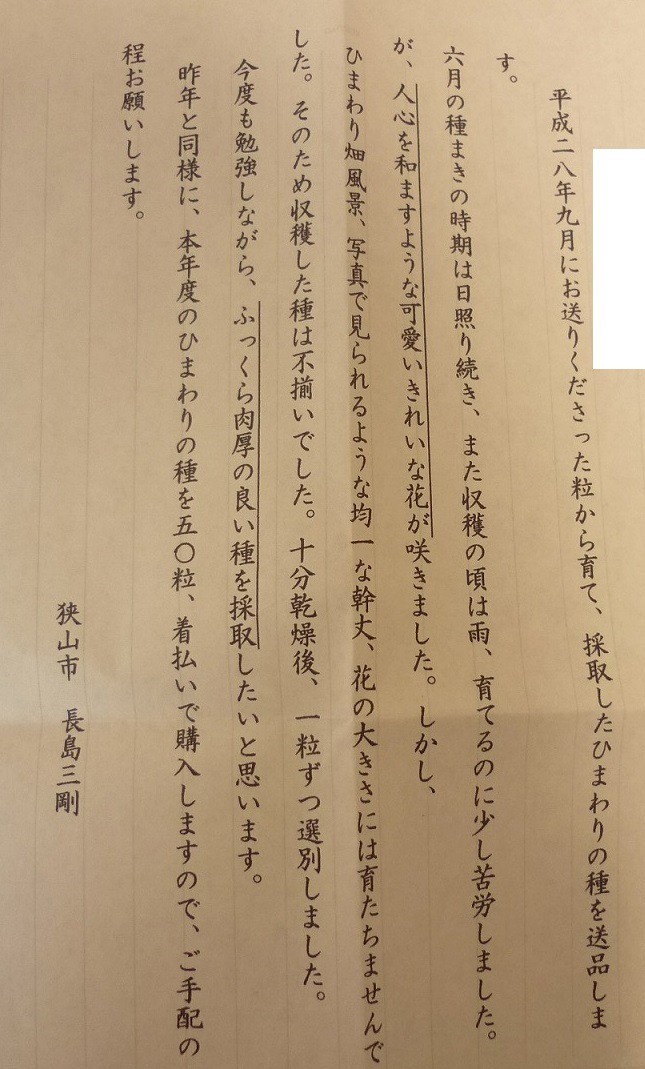 平成二八年九月にお送りくださった粒から育て、採取したひまわりの種を送品しま
す。
六月の種まきの時期は日照り続き、また収穫の頃は雨、育てるのに少し苦労しました。
が、人心を和ますような可愛いきれいな花が咲きました。しかし、
ひまわり畑風景、写真で見られるような均一な幹丈、花の大きさには育たちませんで
した。そのため収穫した種は不揃いでした。十分乾燥後、一粒ずつ選別しました。
今度も勉強しながら、ふっくら肉厚の良い種を採取したいと思います。
昨年と同様に、本年度のひまわりの種を五〇粒、着払いで購入しますので、ご手配の
程お願いします。
狭山市　長島三剛